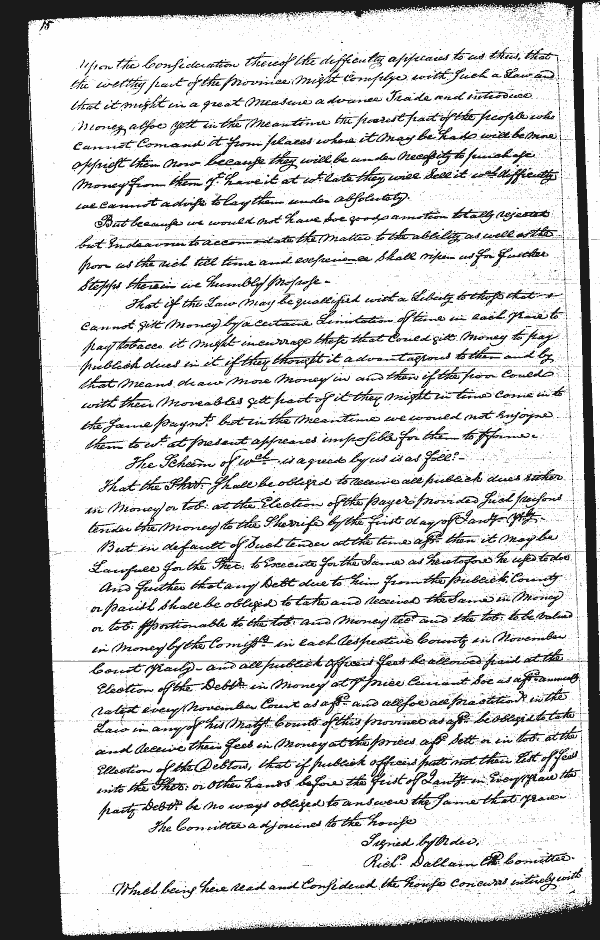 15
upon the Consideration thereof the difficulty appeares to us thus, that
the welthy part of the Province might Complye with Such a Law and
that it might in a great Measure advance Trade and introduce
Money alsoe yett in the Meantime the poorest part of the people who
cannot Comand it from places where it may be had will be more
opprest then now because they will be under Necessity to purchase
Money from them yt. have it at wt. rate they will Sell it wch difficulty
we cannot advise to lay them under absolutely.
But because we would not have soe good a motion totally rejected
but Endeavour to accomodate the Matter to the ability as well as the
poor as the rich till time and experience shall ripen us for further
Stepps therein we humbly Propose -
That if the Law may be quallified with a Liberty to those that
cannot gitt Money by a certaine Limitation of time in each yeare to
pay tobacco it might incourage those that Could gitt Money to pay
publick dues in it if they thought it advantagious to them and by
that Means draw more Money in and then if the poor Could
with their Moveables gett part of it they might in time come in to
the Same paymt. but in the Meantime we would not Enjoyne
them to wt. at present appeares impossible for them to pforme.
The Scheem of wch. is agreed by us is as foll:-
That the Sherr. shall be obliged to receive all publick dues either
in Money or tob: at the Election of the Payer provided Such persons
tender the Money to the Sherrife by the first day of Janry. yrly.
But in default of Such tender at the time afd. then it may be
Lawfull for the Sher. to Execute for the Same as heretofore he used to doe
And further that any Debt due to him from the publick County
or parish shall be obliged to take and received the Same in Money
or tob: pportionable to the tob: and Money recd and the tob: to be valued
in Money by the Comissrs. in each respective County in November
Court yearly - and all publick officers fees be allowed paid at the
Election of the Debtr. in Money at ye price Currant soe as afd. annually
rated every November Court as afd. and alsoe all practitionrs in the
Law in any of his Matys Courts of this province as afd. be obliged to take
and receive their fees in Money at the prices afd. Sett or in tob: at the
Election of the Debtors, that if publick officers putt not their List of fees
into the Sherr: or other hands before the first of Janry. in Every yeare the
party Debtr. be no ways obliged to answere the Same that yeare
The Comittee adjournes to the house
Signed by Order,
Richd. Dallam Clk Comittee.
Which being here read and Considered the house concurrs intirely with